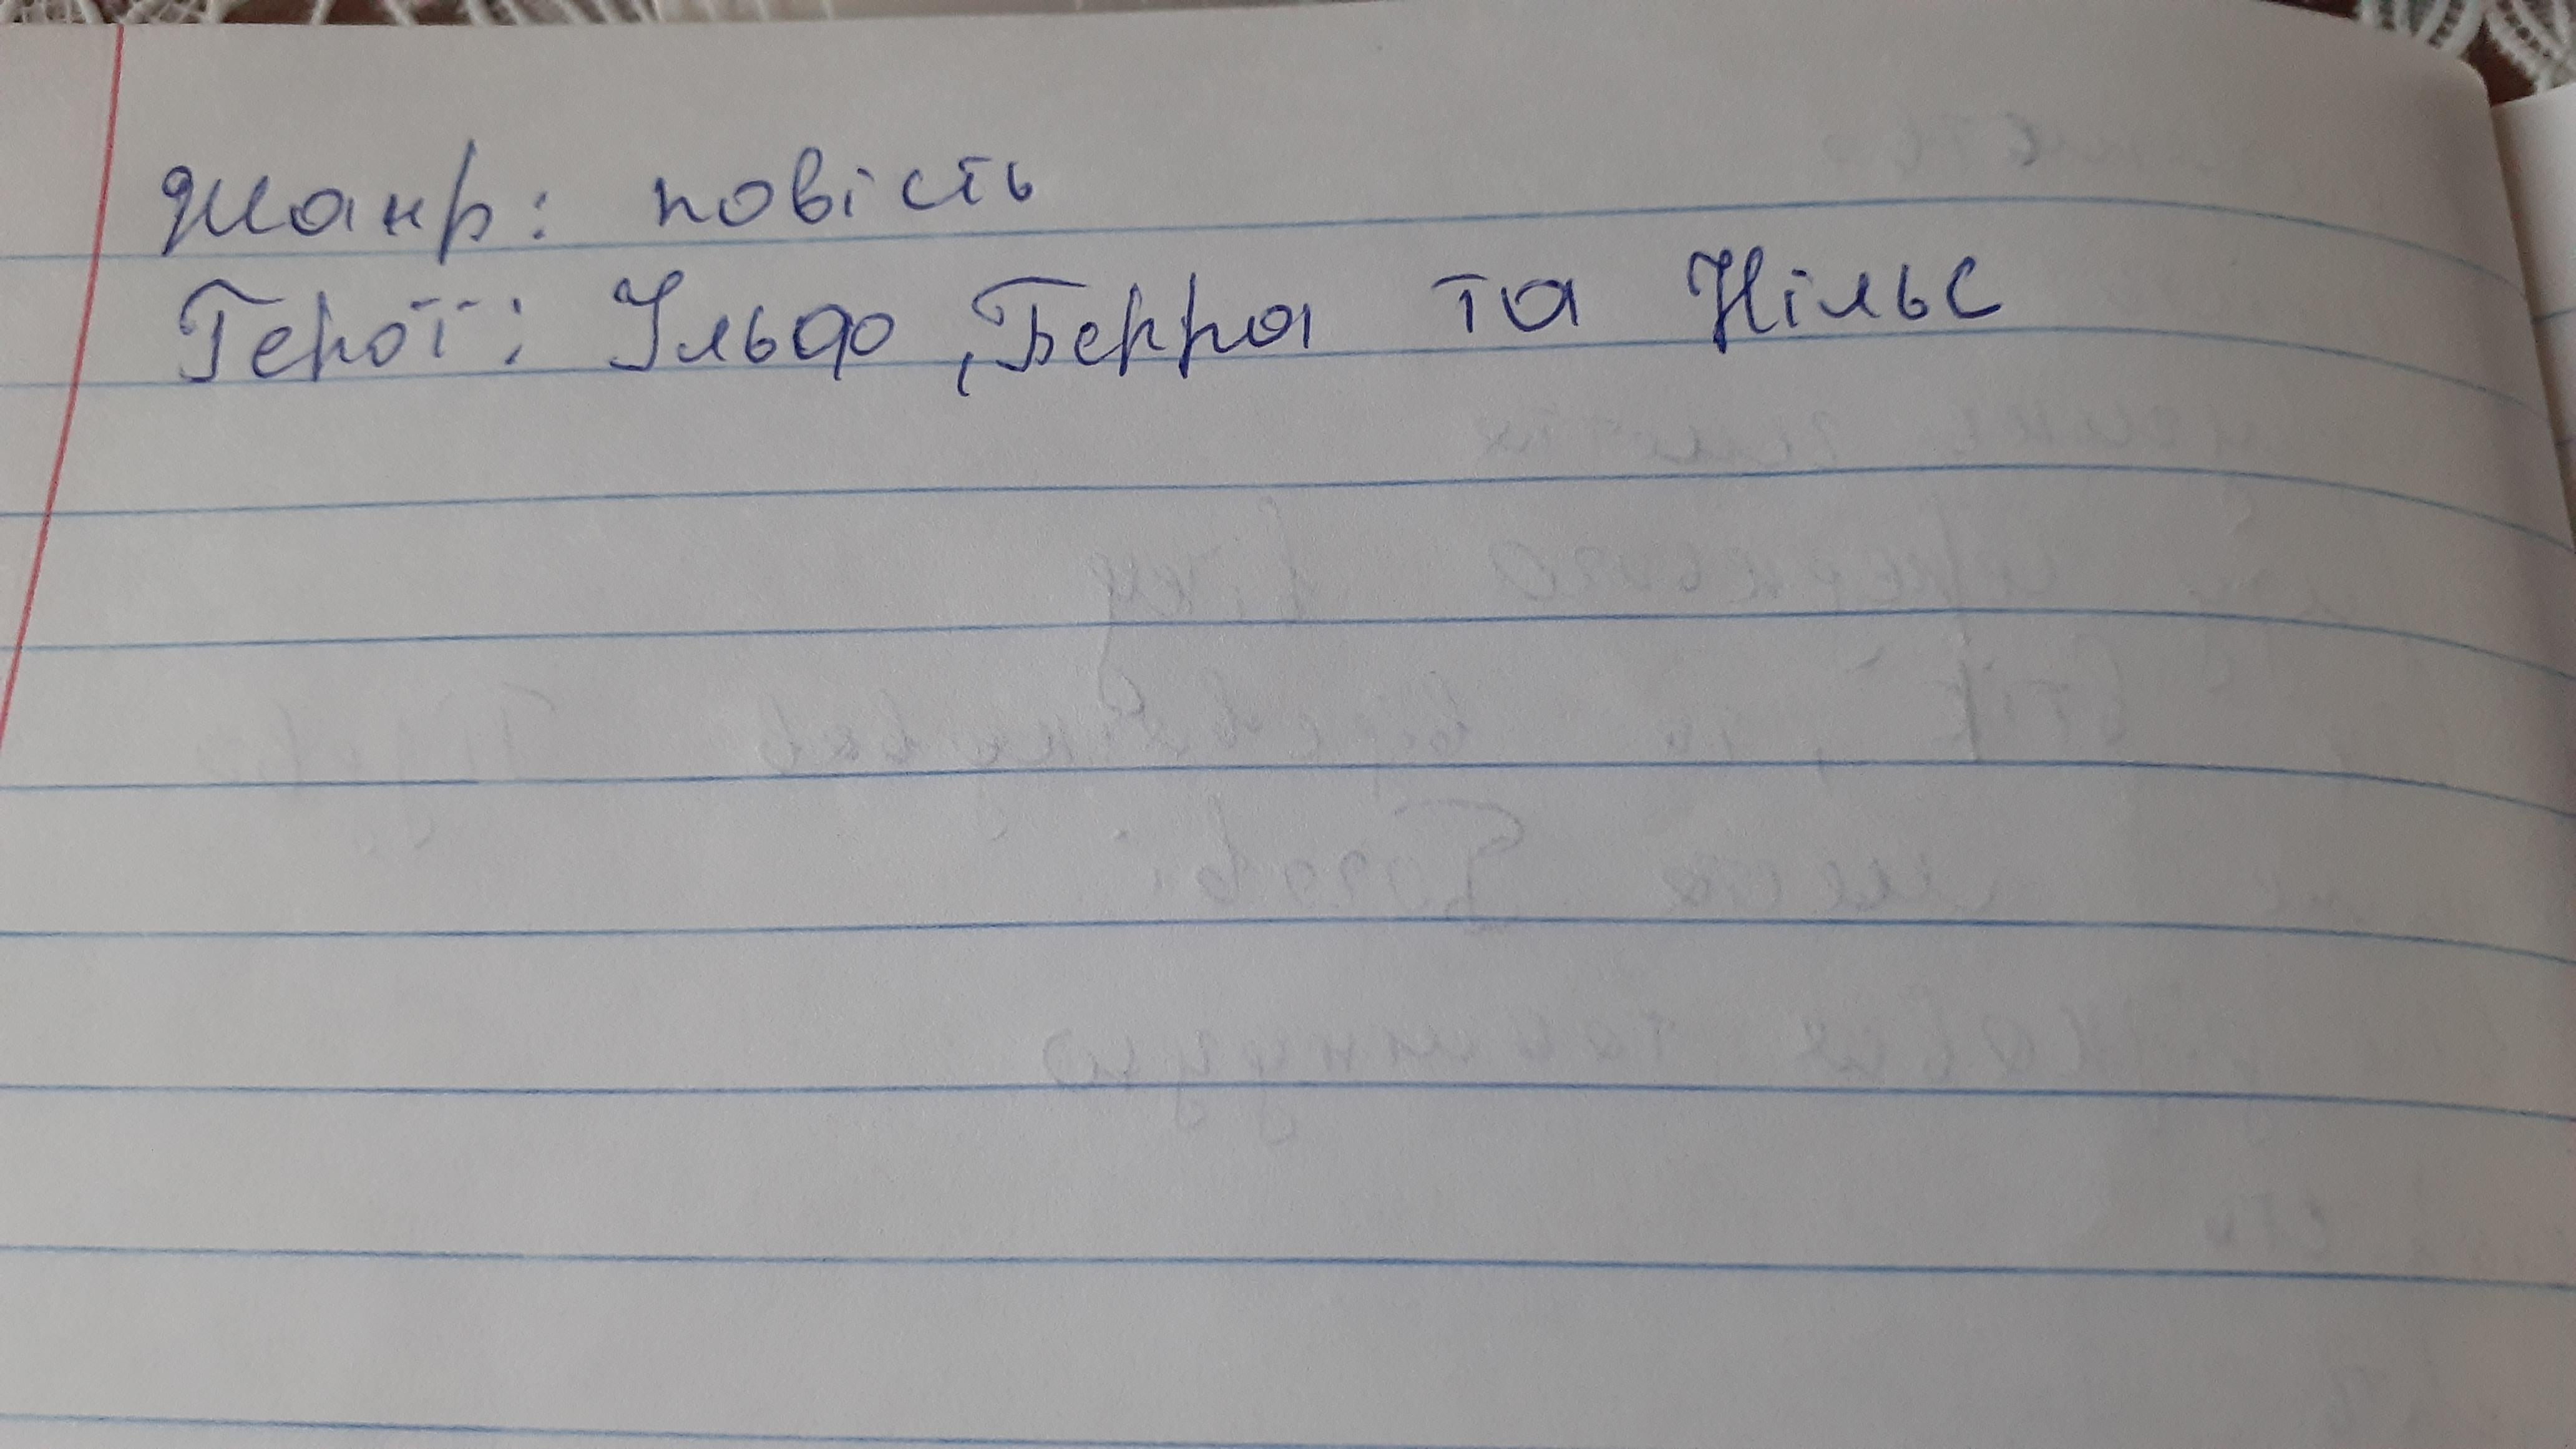 Жанр: повість
Герої: Ульф, Берра та Нільс